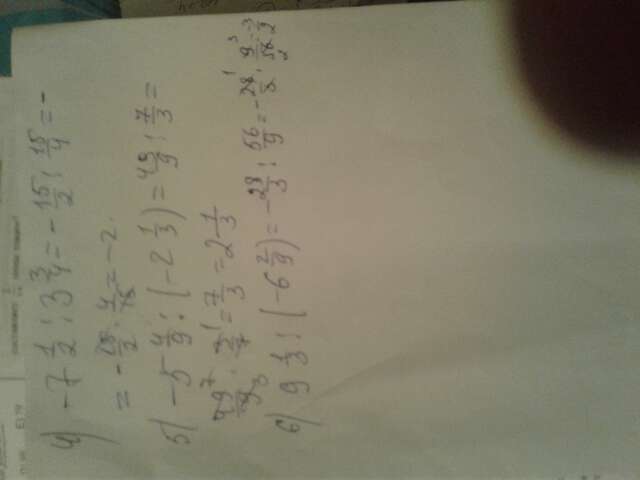 4) -7 1/2 : 3 3/4 = - 15/2 : 15/4 = -
= - 15/2 · 4/15 = -2.
5) -5 4/9 : (-2 1/3) = 49/9 : 7/3 =
49/9 · 3/7 = 7/3 = 2 1/3
6) 9 1/3 : (-6 2/9) = - 28/3 : 56/9 = - 28/3 · 9/56 = -3/2